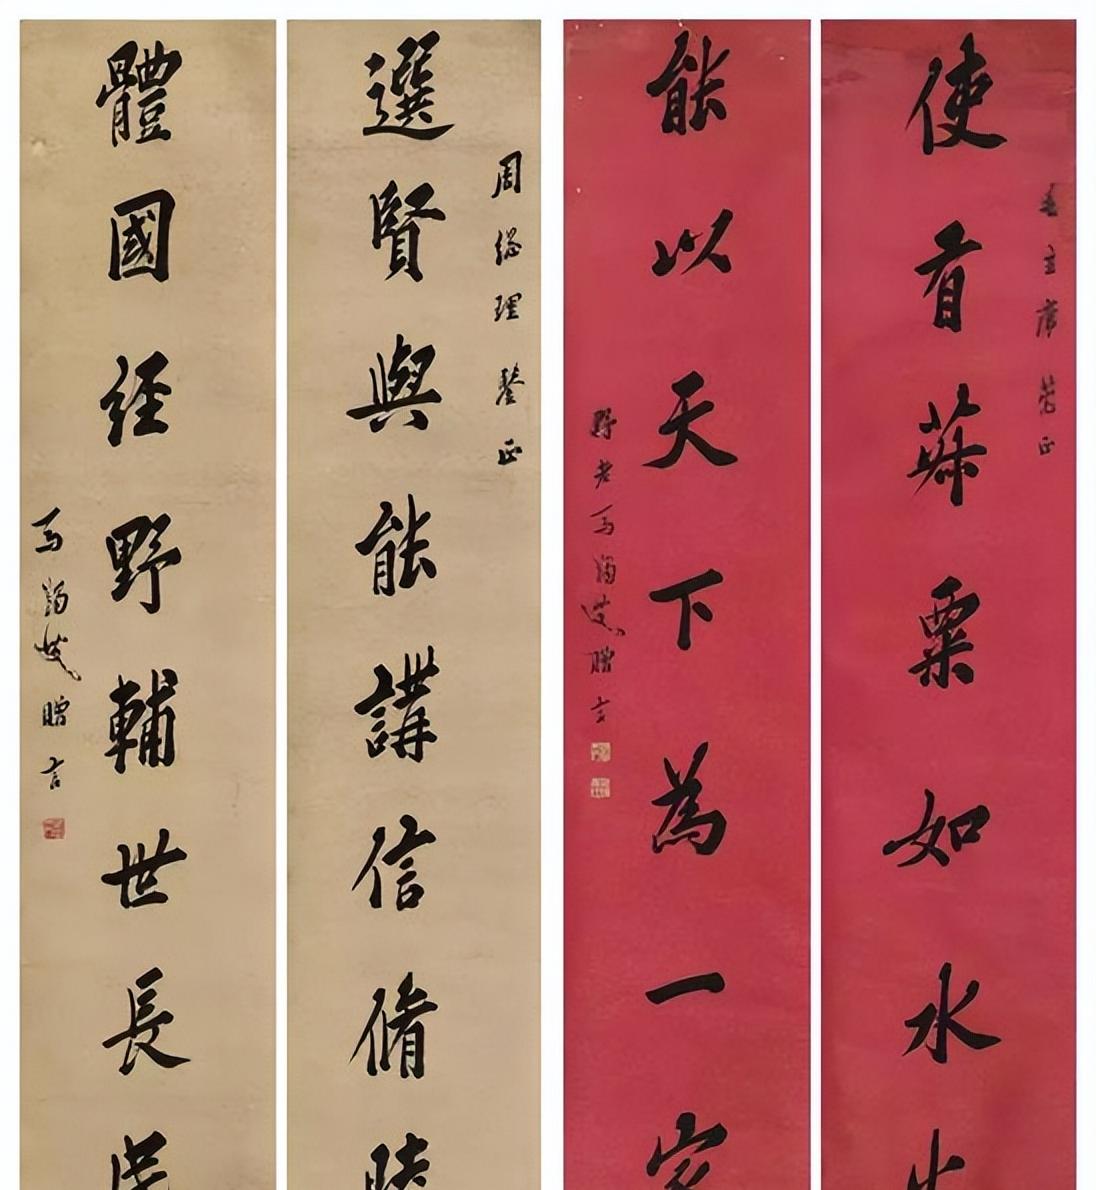 使有菽粟如水火
毛主席正
能以天下為一家
野老馬蠲叟贈言
周總理鑒正
選賢與能講信脩睦
體國經野輔世長民
馬蠲叟贈言